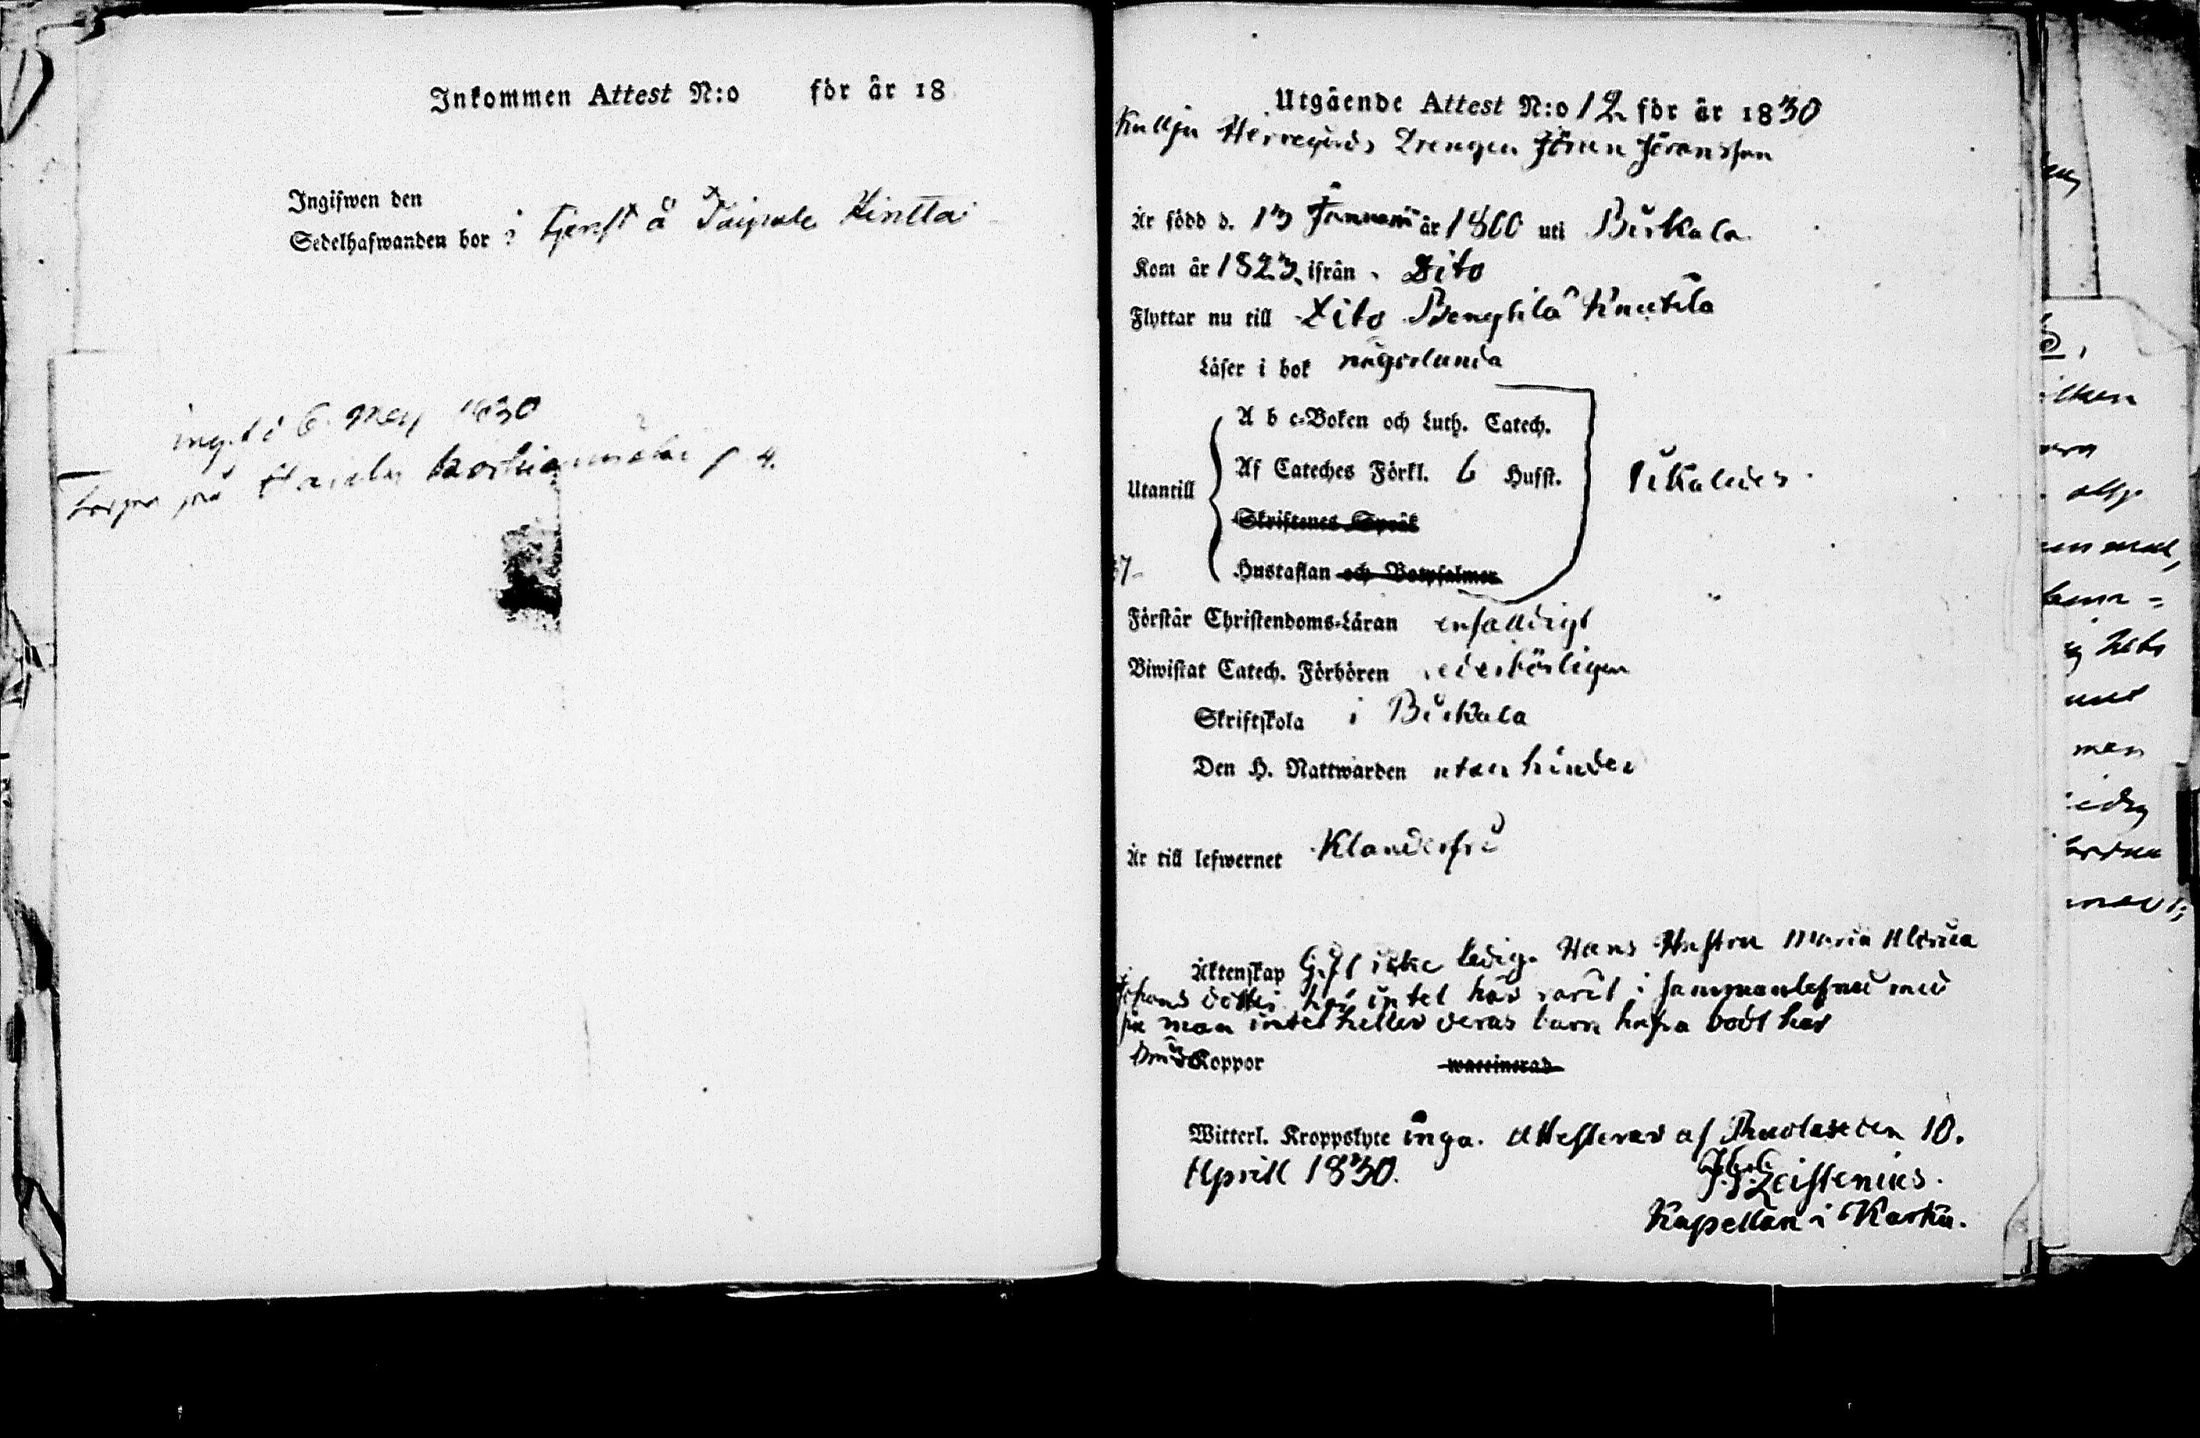 Inkommen Attest N:o för år 18
Ingifwen den
Sedelhafwanden bor i tjenst å Taipale Hintta
ing.d. 6 Maij 1830
på
Utgående Attest N:o 12 för år 1830
Kulju Herregårds Drengen Jöran Jöransson
Är född d. 13 Januarii år 1800 uti Birkala
Kom år 1823 ifrån Dito
Flyttar nu till Dito Bengtilä Knutila
Läser i bok någorlunda
A b c-Boken och Luth. Catech.
Utantill Af Cateches Förkl. 6 Hufst. likaledes
Skriftenes Språk
Hustaflan och Botpsalmer
Förstår Christendoms-Läran enfaldigt
Biwistat Catech. Förhören vederbörligen
Skriftskola i Birkala
Den H. Nattwarden utan hinder
Är till lefwernet Klanderfri
Äktenskap Gift icke ledig. Hans Hustru Maria Ulrica
Johans dotter har intet här varit i sammanlefnad med
sin man intet heller deras barn hafva bodt här
Koppor waccinerad
Witterl. Kroppslyte inga. Attesteras af den 10.
Aprill 1830. Zeistenius.
Kapellan i Karku.